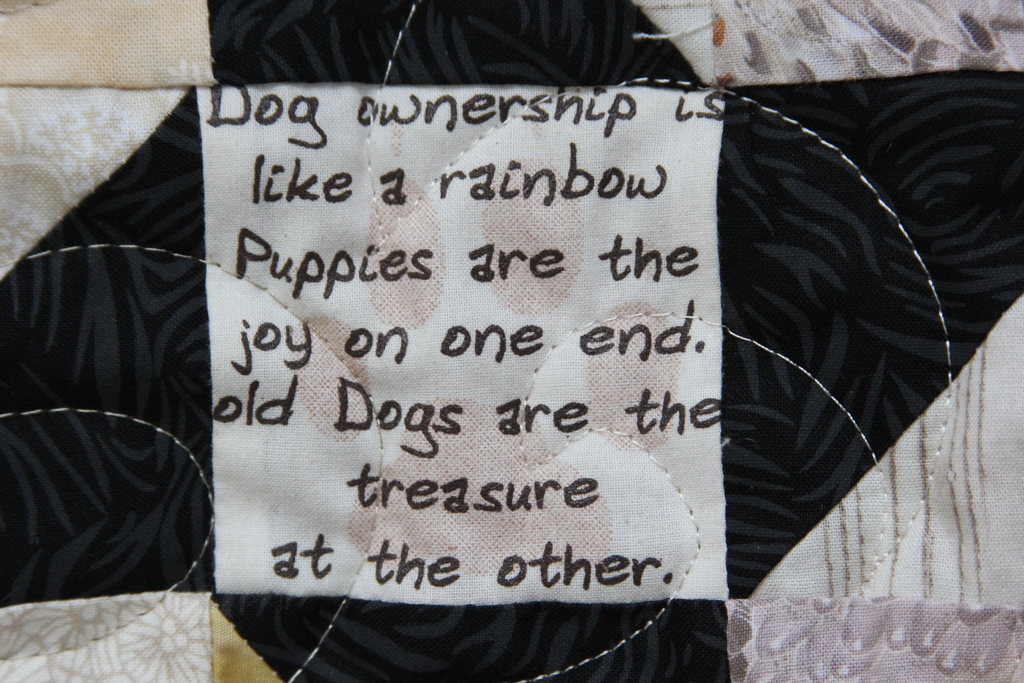 Dog ownership is
like a rainbow
Puppies are the
joy on one end.
old Dogs are the
treasure
at the other.